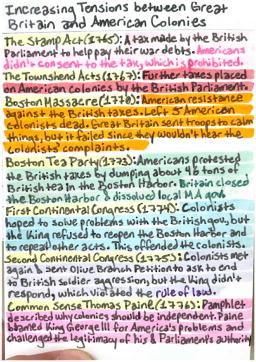 Increasing Tensions between Great
Britain and American Colonies
The Stamp Act (1765): A tax made by the British
Parliament to help pay their war debts. Americans
didn't consent to the tax, which is prohibited.
The Townshend Acts (1767): Further taxes placed
on American colonies by the British Parliament.
Boston Massacre (1770): American resistance
against the British taxes. Left 5 American
colonists dead. Great Britain sent troops to calm
things, but it failed since they wouldn't hear the
colonists' complaints.
Boston Tea Party (1773): Americans protested
the British taxes by dumping about 46 tons of
British tea in the Boston Harbor. Britain closed
the Boston Harbor & dissolved local MA gov.
First Continental Congress (1774): Colonists
hoped to solve problems with the British gov, but
the King refused to reopen the Boston Harbor and
to repeal other acts. This offended the colonists.
Second Continental Congress (1775): Colonists met
again & sent Olive Branch Petition to ask to end
to British soldier aggression, but the King didn't
respond, which violated the rule of law.
Common Sense Thomas Paine (1776): Pamphlet
described why colonies should be independent. Paine
blamed King George III for America's problems and
challenged the legitimacy of his & Parliament's authority